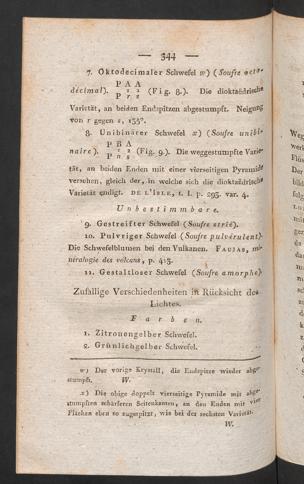 — 344 —
7. Oktodecimaler Schwefel w) (Soufre octo-
decimal). P A A (Fig. 8.). Die dioktaëdrische
P r s
Varietät, an beiden Endspitzen abgestumpft. Neigung
von r gegen s, 135°.
8. Unibinärer Schwefel x) (Soufre unibi-
naire). P B A (Fig. 9.). Die weggestumpfte Varie-
P n s
tät, an beiden Enden mit einer vierseitigen Pyramide
versehen, gleich der, in welche sich die dioktaëdrische
Varietät endigt. DE L'ISLE, t. I. p. 293. var. 4.
Unbestimmbare.
9. Gestreifter Schwefel (Soufre strié).
10. Pulvriger Schwefel (Soufre pulvérulent).
Die Schwefelblumen bei den Vulkanen. FAUJAS, mi-
néralogie des volcans, p. 413.
11. Gestaltloser Schwefel (Soufre amorphe)
Zufällige Verschiedenheiten in Rücksicht des
Lichtes.
Farben.
1. Zitronengelber Schwefel.
2. Grünlichgelber Schwefel.
w) Der vorige Krystall, die Endspitze wieder abge-
stumpft. W.
x) Die obige doppelt vierseitige Pyramide mit abge-
stumpften schärferen Seitenkanten, an den Enden mit vier
Flächen eben so zugespitzt, wie bei der sechsten Varietät.
W.